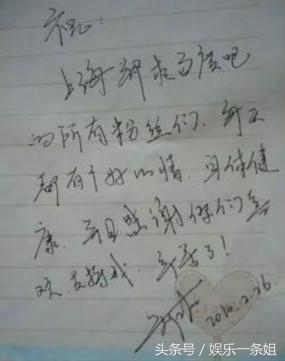 祝:
上海 百度吧
的所有粉丝们,每天
都有个好心情,身体健
康,并且感谢你们喜
欢,支持我,辛苦了!
2010.2.26
头条号 / 娱乐一条姐